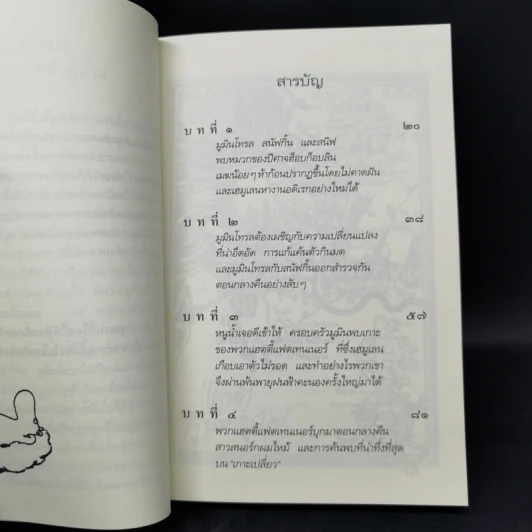 สารบัญ
บทที่ ๑ ๒๐
มูมินโทรล สนัฟกิ้น และสนิฟ
พบหมวกของปีศาจฮ็อบก็อบลิน
เมฆน้อยๆ ห้าก้อนปรากฏขึ้นโดยไม่คาดฝัน
และเฮมูเลนหางานอดิเรกอย่างใหม่ได้
บทที่ ๒ ๓๘
มูมินโทรลต้องเผชิญกับความเปลี่ยนแปลง
ที่น่าอึดอัด การแก้แค้นตัวกินมด
และมูมินโทรลกับสนัฟกิ้นออกสำรวจกัน
ตอนกลางคืนอย่างลับๆ
บทที่ ๓ ๕๗
หนูน้ำเจอดีเข้าให้ ครอบครัวมูมินพบเกาะ
ของพวกแฮตตี้แฟตเทนเนอร์ ที่ซึ่งเฮมูเลน
เกือบเอาตัวไม่รอด และทำอย่างไรพวกเขา
จึงผ่านพ้นพายุฝนฟ้าคะนองครั้งใหญ่มาได้
บทที่ ๔ ๘๑
พวกแฮตตี้แฟตเทนเนอร์บุกมาตอนกลางคืน
สาวสนอร์กผมไหม้ และการค้นพบที่น่าทึ่งที่สุด
บน "เกาะเปลี่ยว"